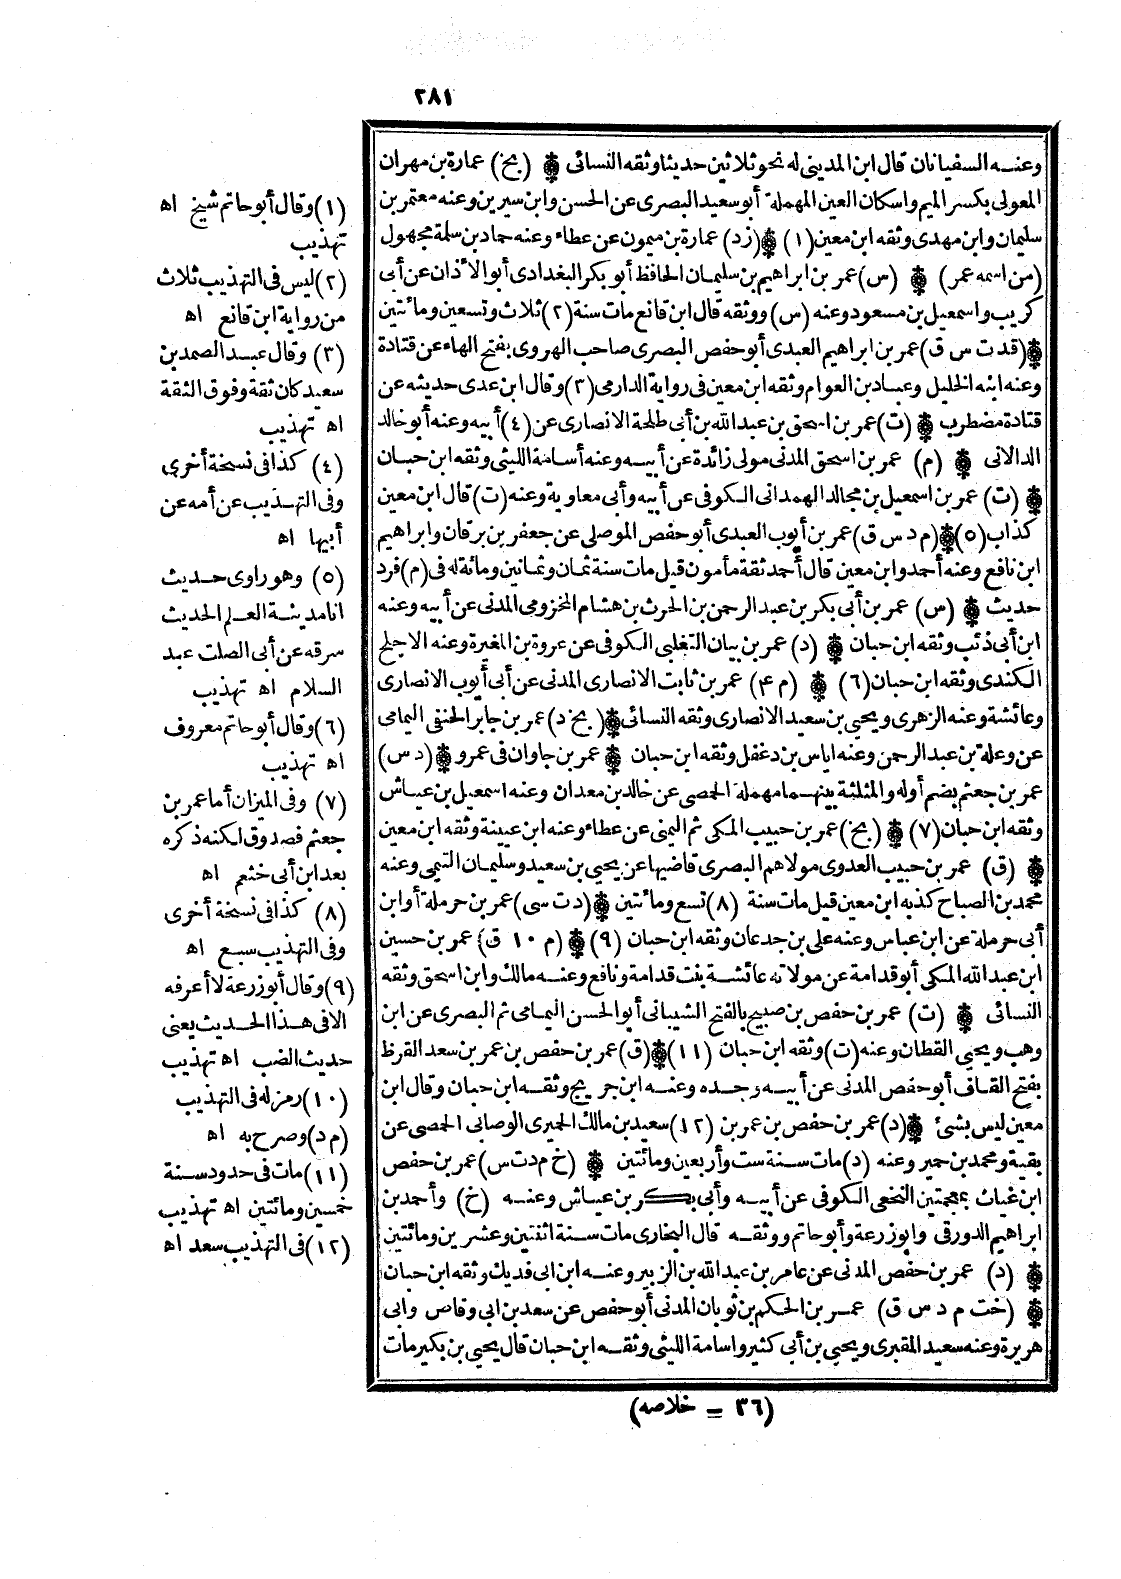 ٢٨١
وعنه السفيانان قال ابن المديني له نحو ثلاثين حديثا وثقه النسائى ۞ (بخ) عمارة بن مهران
المعولى بكسر الميم واسكان العين المهملة أبو سعيد البصرى عن الحسن وابن سيرين وعنه معتمر بن
سليمان وابن مهدى وثقه ابن معين (١) ۞ (زد) عمارة بن ميمون عن عطاء وعنه حماد بن سلمة مجهول
(من اسمه عمر) ۞ (س) عمر بن ابراهيم بن سليمان الحافظ أبو بكر البغدادى أبو الأذان عن أبى
كريب واسمعيل بن مسعود وعنه (س) ووثقه قال ابن قانع مات سنة (٢) ثلاث وتسعين ومائتين
۞ (قد ت س ق) عمر بن ابراهيم العبدى أبو حفص البصرى صاحب الهروى بفتح الهاء عن قتادة
وعنه ابنه الخليل وعباد بن العوام وثقه ابن معين فى رواية الدارمى (٣) وقال ابن عدى حديثه عن
قتادة مضطرب ۞ (ت) عمر بن اسحق بن عبدالله بن أبى طلحة الانصارى عن (٤) أبيه وعنه أبو خالد
الدالانى ۞ (م) عمر بن اسحق المدنى مولى زائدة عن أبيه وعنه أسامة الليثى وثقه ابن حبان
۞ (ت) عمر بن اسمعيل بن مجالد الهمدانى الكوفى عن أبيه وأبى معاوية وعنه (ت) قال ابن معين
كذاب (٥) ۞ (م د س ق) عمر بن أيوب العبدى أبو حفص الموصلى عن جعفر بن برقان وابراهيم
ابن نافع وعنه أحمد وابن معين قال أحمد ثقة مأمون قيل مات سنة ثمان وثمانين ومائة له فى (م) فرد
حديث ۞ (س) عمر بن أبى بكر بن عبد الرحمن بن الحرث بن هشام المخزومى المدنى عن أبيه وعنه
ابن أبى ذئب وثقه ابن حبان ۞ (د) عمر بن بيان التغلبى الكوفى عن عروة بن المغيرة وعنه الاجلح
الكندى وثقه ابن حبان (٦) ۞ (م ٤) عمر بن ثابت الانصارى المدنى عن أبى أيوب الانصارى
وعائشة وعنه الزهرى ويحيى بن سعيد الانصارى وثقه النسائى ۞ (بخ د) عمر بن جابر الحنفى اليمامى
عن وعلة بن عبد الرحمن وعنه اياس بن دغفل وثقه ابن حبان ۞ عمر بن جاوان فى عمرو ۞ (د س)
عمر بن جعثم بضم أوله والمثلثة بينهما مهملة الحمصى عن خالد بن معدان وعنه اسمعيل بن عياش
وثقه ابن حبان (٧) ۞ (بخ) عمر بن حبيب المكى ثم اليمنى عن عطاء وعنه ابن عيينة وثقه ابن معين
۞ (ق) عمر بن حبيب العدوى مولاهم البصرى قاضيها عن يحيى بن سعيد وسليمان التيمى وعنه
محمد بن الصباح كذبه ابن معين قيل مات سنة (٨) تسع ومائتين ۞ (د ت سى) عمر بن حرملة أو ابن
أبى حرملة عن ابن عباس وعنه على بن جدعان وثقه ابن حبان (٩) ۞ (م ١٠ ق) عمر بن حسين
ابن عبدالله المكى أبو قدامة عن مولاته عائشة بنت قدامة ونافع وعنه مالك وابن اسحق وثقه
النسائى ۞ (ت) عمر بن حفص بن صبيح بالفتح الشيبانى أبو الحسن اليمامى ثم البصرى عن ابن
وهب ويحيى القطان وعنه (ت) وثقه ابن حبان (١١) ۞ (ق) عمر بن حفص بن عمر بن سعد القرظ
بفتح القاف أبو حفص المدنى عن أبيه وجده وعنه ابن جريج وثقه ابن حبان وقال ابن
معين ليس بشئ ۞ (د) عمر بن حفص بن عمر بن (١٢) سعيد بن مالك الحميرى الوصابى الحمصى عن
بقية ومحمد بن حمير وعنه (د) مات سنة ست وأربعين ومائتين ۞ (خ م د ت س) عمر بن حفص
ابن غياث بمعجمتين النخعى الكوفى عن أبيه وأبى بكر بن عياش وعنه (خ) وأحمد بن
ابراهيم الدورقى وابو زرعة وأبو حاتم ووثقه قال البخارى مات سنة اثنتين وعشرين ومائتين
۞ (د) عمر بن حفص المدنى عن عامر بن عبدالله بن الزبير وعنه ابن ابى فديك وثقه ابن حبان
۞ (خت م د س ق) عمر بن الحكم بن ثوبان المدنى أبو حفص عن سعد بن ابى وقاص وابى
هريرة وعنه سعيد المقبرى ويحيى بن أبى كثير واسامة الليثى وثقه ابن حبان قال يحيى بن بكير مات
(١) وقال أبو حاتم شيخ اه
تهذيب
(٢) ليس فى التهذيب ثلاث
من رواية ابن قانع اه
(٣) وقال عبد الصمد بن
سعيد كان ثقة وفوق الثقة
اه تهذيب
(٤) كذا فى نسخة أخرى
وفى التهذيب عن أمه عن
أبيها اه
(٥) وهو راوى حديث
انا مدينة العلم الحديث
سرقه عن أبى الصلت عبد
السلام اه تهذيب
(٦) وقال أبو حاتم معروف
اه تهذيب
(٧) وفى الميزان أما عمر بن
جعثم فصدوق لكنه ذكره
بعد ابن أبى خثعم اه
(٨) كذا فى نسخة أخرى
وفى التهذيب سبع اه
(٩) وقال أبو زرعة لا أعرفه
الا فى هذا الحديث يعنى
حديث الضب اه تهذيب
(١٠) رمز له فى التهذيب
(م د) وصرح به اه
(١١) مات فى حدود سنة
خمسين ومائتين اه تهذيب
(١٢) فى التهذيب سعد اه
(٣٦ – خلاصه)